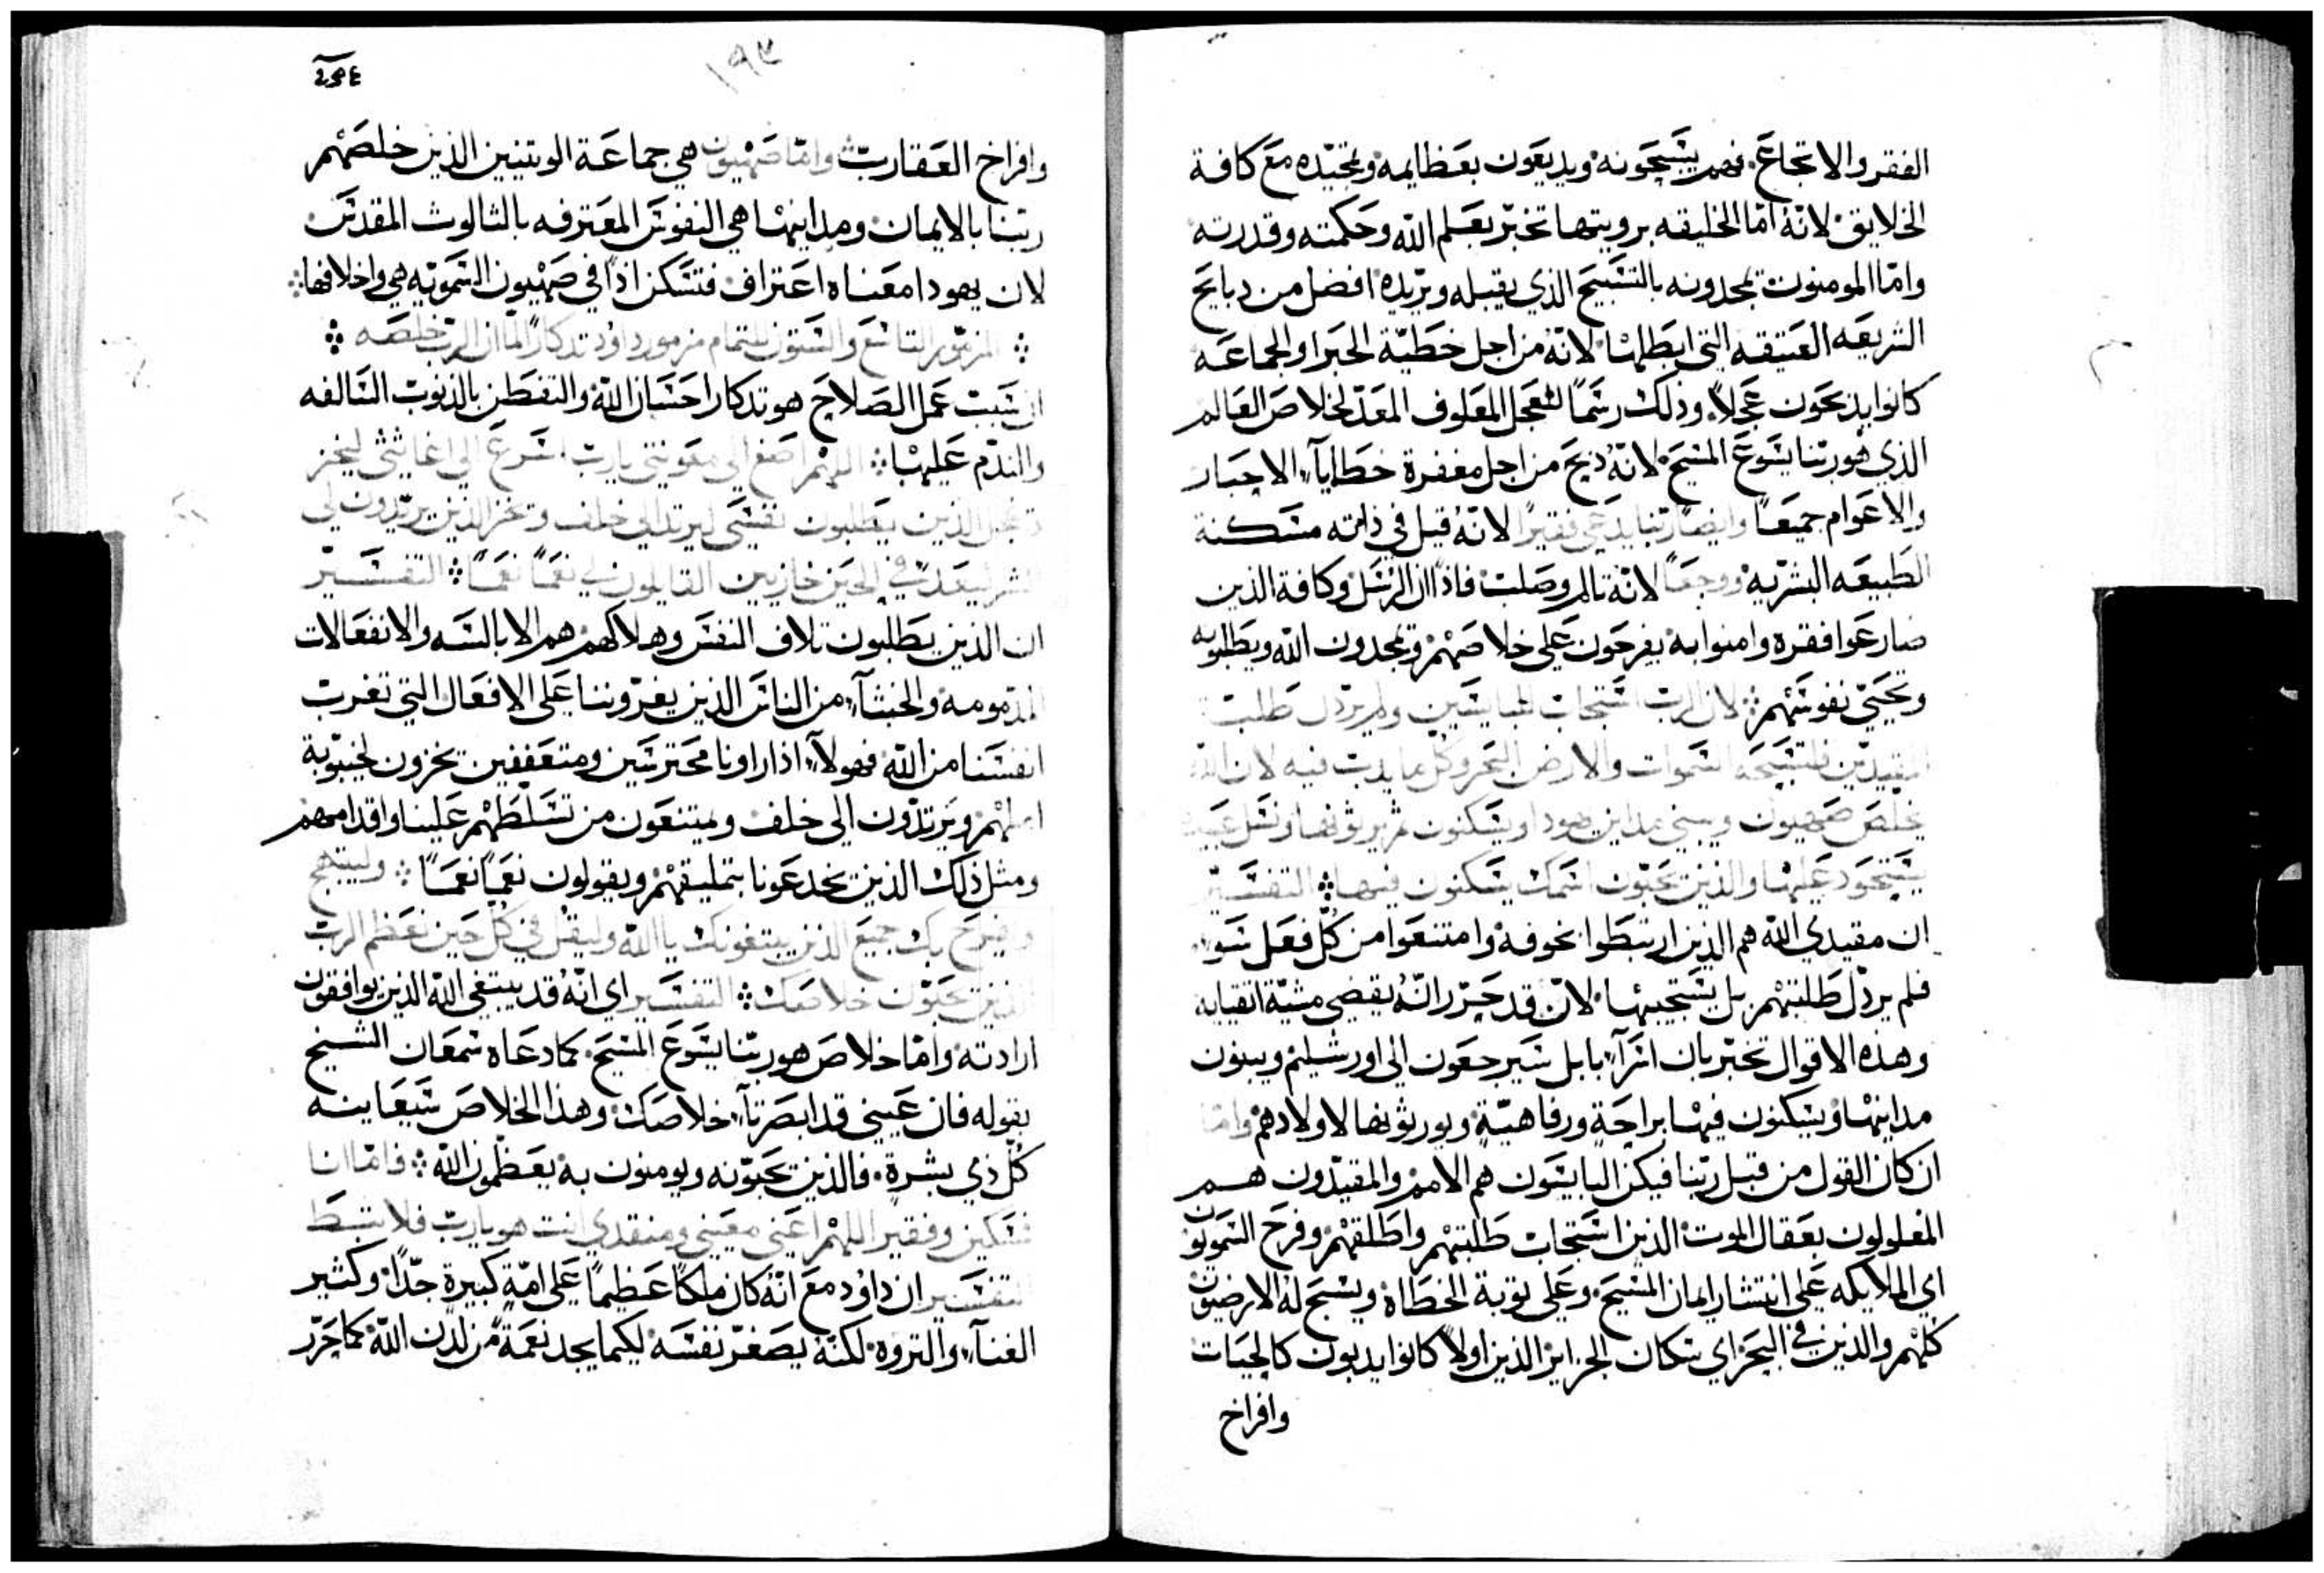 الفقر والاتجاع. فهم يسبحونه ويديعون بعظايمه وتمجيده مع كافة
الخلايق لانه اما الخليقه برويتها تخبر بعلم الله وحكمته وقدرته
واما المومنون تمجدونه بالتسبيح الذي يقبله ويريده افضل من دبايح
الشريعه العتيقه التي ابطلها لانه من اجل خطية الحبر او الجماعه
كانوا يدبحون عجلاً وذلك رسماً للعجل المعلوف المعد لخلاص العالم
الذي هو ربنا يسوع المسيح لانه دبح من اجل مغفرة خطايا الاحبار
والاعوام جميعاً وايضا ربنا يدعي فقيراً لانه قبل في ذاته مسكنة
الطبيعه البشريه ووجعاً لانه تالم وصلب فاذاً ان الرسل وكافة الذين
ضارعوا فقره وامنوا به يفرحون على خلاصهم وتمجدون الله ويطلبوه
وتحيى نفوسهم لان الرب استجاب للبايسين ولم يردل طلبت
المقيدين فلتسبحه السموات والارض البحر وكل ما يدب فيه لان الله
يخلص صهيون ويبني مداين يهودا ويسكنون ثم يرثونها ونسل عبيده
يستحود عليها والذين تحبون اسمك يسكنون فيها التفسير
ان مقيدي الله هم الذين ارتبطوا بخوفه وامتنعوا من كل فعل سوء
فلم يردل طلبتهم بل يستجيبها لانه قد حرر انه يقضي مشية اتقيايه
وهذه الاقوال تخبر بان اسرآء بابل سيرجعون الى اورشليم ويبنون
مداينها ويسكنون فيها براحة ورفاهية ويورثونها لاولادهم واما
ان كان القول من قبل ربنا فيكن البايسون هم الامم والمقيدون هم
المغلولون بعقال الموت الذين استجاب طلبتهم واطلقهم وفرح السمويون
اي الملايكه على انتشار ايمان المسيح وعلى توبة الخطاة ويسبح له الارضيون
كلهم والذين في البحر اي سكان الجزاير الذين اولاً كانوا يدبون كالحيات
وافراخ
١٩٣
وافراخ العقارب واما صهيون هي جماعة الوتنيين الذين خلصهم
ربنا بالايمان ومداينها هي النفوس المعترفه بالثالوث المقدس
لان يهودا معناه اعتراف فتسكن اذاً في صهيون السمويه هي واخلافها
المزمور التاسع والستون للتمام مزمور داود تدكاراً لما ان الرب خلصه
ان سبب عمل الصلاح هو تدكار احسان الله والتفطن بالذنوب السالفه
والندم عليها اللهم اصغ الى معونتي يارب اسرع الي اغاثتي ليخز
وتخجل الذين يطلبون نفسي ليرتد الى خلف وتخز الذين يريدون لي
الشر ليعد في الحين خازيين القايلون لي نعماً نعماً التفسير
ان الذين يطلبون تلاف النفس وهلاكهم هم الابالسه والانفعالات
المدمومه والخبثآء من الناس الذين يغروننا على الافعال التي تغرب
انفسنا من الله فهولآء اذا راونا محترسين ومتعففين يخزون لخيبوبة
املهم ويرتدون الى خلف ويمتنعون من تسلطهم علينا واقدامهم
ومثل ذلك الذين يخدعونا بتمليقهم ويقولون نعماً نعماً وليبتهج
ويفرح بك جميع الذين يبتغونك يا الله وليقل في كل حين نعظم الرب
الذين تحبون خلاصك التفسير اي انه قد يبتغي الله الذين يوافقون
ارادته واما خلاصه هو ربنا يسوع المسيح كما دعاه سمعان الشيخ
بقوله فان عيني قد ابصرتا خلاصك وهذا الخلاص سيعاينه
كل ذي بشرة فالذين تحبونه ويومنون به يعظمون الله فاما انا
فسكين وفقير اللهم اعني معيني ومنقدي انت هو يارب فلا تبط
التفسير ان داود مع انه كان ملكاً عظيماً على امة كبيرة جداً وكثير
الغنآء والتروه لكنه يصغر نفسه لكيما يجد نعمة من لدن الله كما حرر